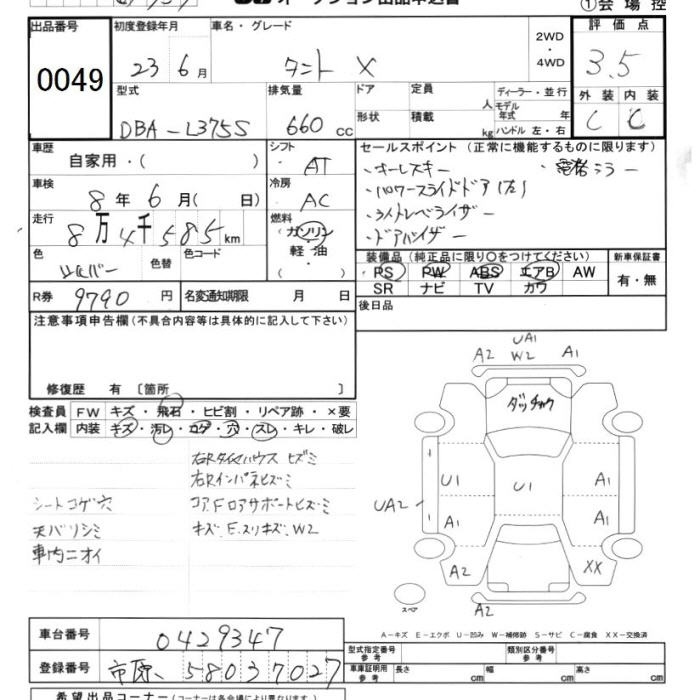 オークション出品申込書
①会場控
出品番号 初度登録年月 車名・グレード 2WD・4WD 評価点
0049 23 6月 タント X 3.5
型式 排気量 ドア 定員 人 ディーラー・並行 外装 内装
DBA-L375S 660cc 形状 積載 kg モデル年式 年 ハンドル 左・右 C C
車歴 シフト セールスポイント (正常に機能するものに限ります)
自家用・( ) AT ・キーレスキー ・電格ミラー
車検 冷房 ・パワースライドドア(左)
8年 6月( 日) AC ・ライトレベライザー
走行 燃料 ・ドアバイザー
8万4千585km ガソリン・軽油・
色 シルバー 色替 色コード 装備品 (純正品に限り○をつけてください) 新車保証書
PS PW ABS エアB AW 有・無
SR ナビ TV カワ
R券 9790円 名変通知期限 月 日 後日品
注意事項申告欄(不具合内容等は具体的に記入して下さい)
修復歴 有 〔箇所 〕
検査員 FW キズ・飛石・ヒビ割・リペア跡・×要
記入欄 内装 キズ・汚レ・コゲ・穴・スレ・キレ・破レ
右Rタイヤハウス ヒズミ
右Rインパネヒズミ
シートコゲ穴 コア.Fロアサポートヒズミ
天バリシミ キズ、E.スリキズ、W2
車内ニオイ
UA1
A2 W2 A1
ダッチャク
U1 U1 A1
UA2 A1 A1
A2 XX
スペア A2
A-キズ E-エクボ U-凹み W-補修跡 S-サビ C-腐食 XX-交換済
車台番号 0429347
型式指定番号 参考 類別区分番号 参考
登録番号 市原、580 3 7027
車庫証明用 参考 長さ cm 幅 cm 高さ cm
希望出品コーナー(コーナーは各会場により異なります)